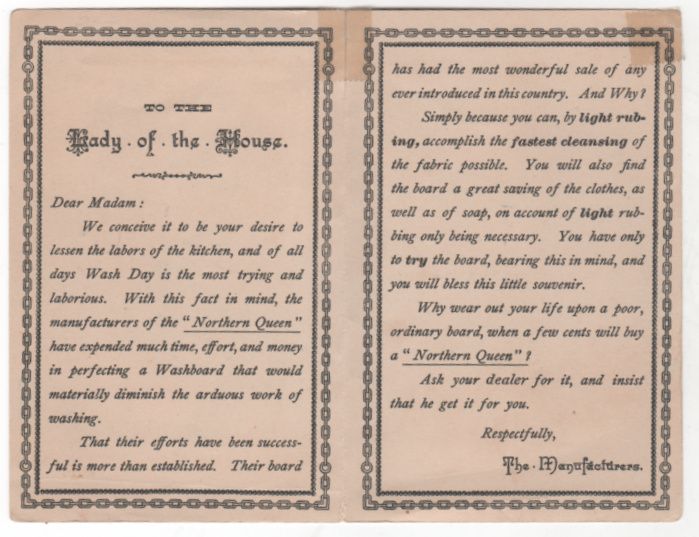 TO THE
Lady · of · the · House.
Dear Madam :
We conceive it to be your desire to
lessen the labors of the kitchen, and of all
days Wash Day is the most trying and
laborious. With this fact in mind, the
manufacturers of the "Northern Queen"
have expended much time, effort, and money
in perfecting a Washboard that would
materially diminish the arduous work of
washing.
That their efforts have been success-
ful is more than established. Their board
has had the most wonderful sale of any
ever introduced in this country. And Why?
Simply because you can, by light rub-
bing, accomplish the fastest cleansing of
the fabric possible. You will also find
the board a great saving of the clothes, as
well as of soap, on account of light rub-
bing only being necessary. You have only
to try the board, bearing this in mind, and
you will bless this little souvenir.
Why wear out your life upon a poor,
ordinary board, when a few cents will buy
a "Northern Queen"?
Ask your dealer for it, and insist
that he get it for you.
Respectfully,
The · Manufacturers.